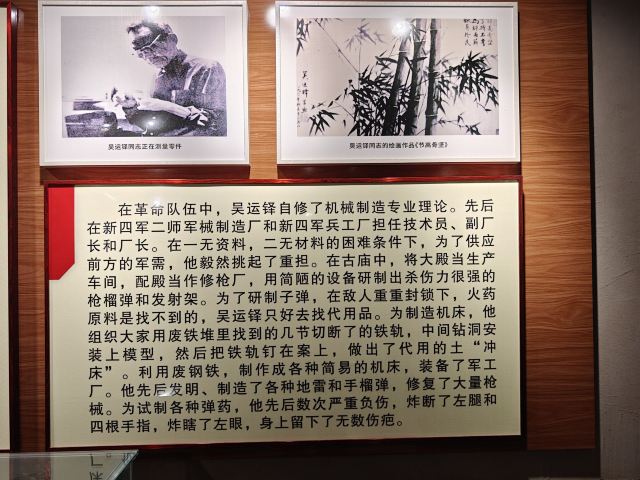 吴运铎同志正在测量零件
吴运铎同志的绘画作品《节高骨坚》
吴运铎
在革命队伍中，吴运铎自修了机械制造专业理论。先后
在新四军二师军械制造厂和新四军兵工厂担任技术员、副厂
长和厂长。在一无资料，二无材料的困难条件下，为了供应
前方的军需，他毅然挑起了重担。在古庙中，将大殿当生产
车间，配殿当作修枪厂，用简陋的设备研制出杀伤力很强的
枪榴弹和发射架。为了研制子弹，在敌人重重封锁下，火药
原料是找不到的，吴运铎只好去找代用品。为制造机床，他
组织大家用废铁堆里找到的几节切断了的铁轨，中间钻洞安
装上模型，然后把铁轨钉在案上，做出了代用的土“冲
床”。利用废钢铁，制作成各种简易的机床，装备了军工
厂。他先后发明、制造了各种地雷和手榴弹，修复了大量枪
械。为试制各种弹药，他先后数次严重负伤，炸断了左腿和
四根手指，炸瞎了左眼，身上留下了无数伤疤。